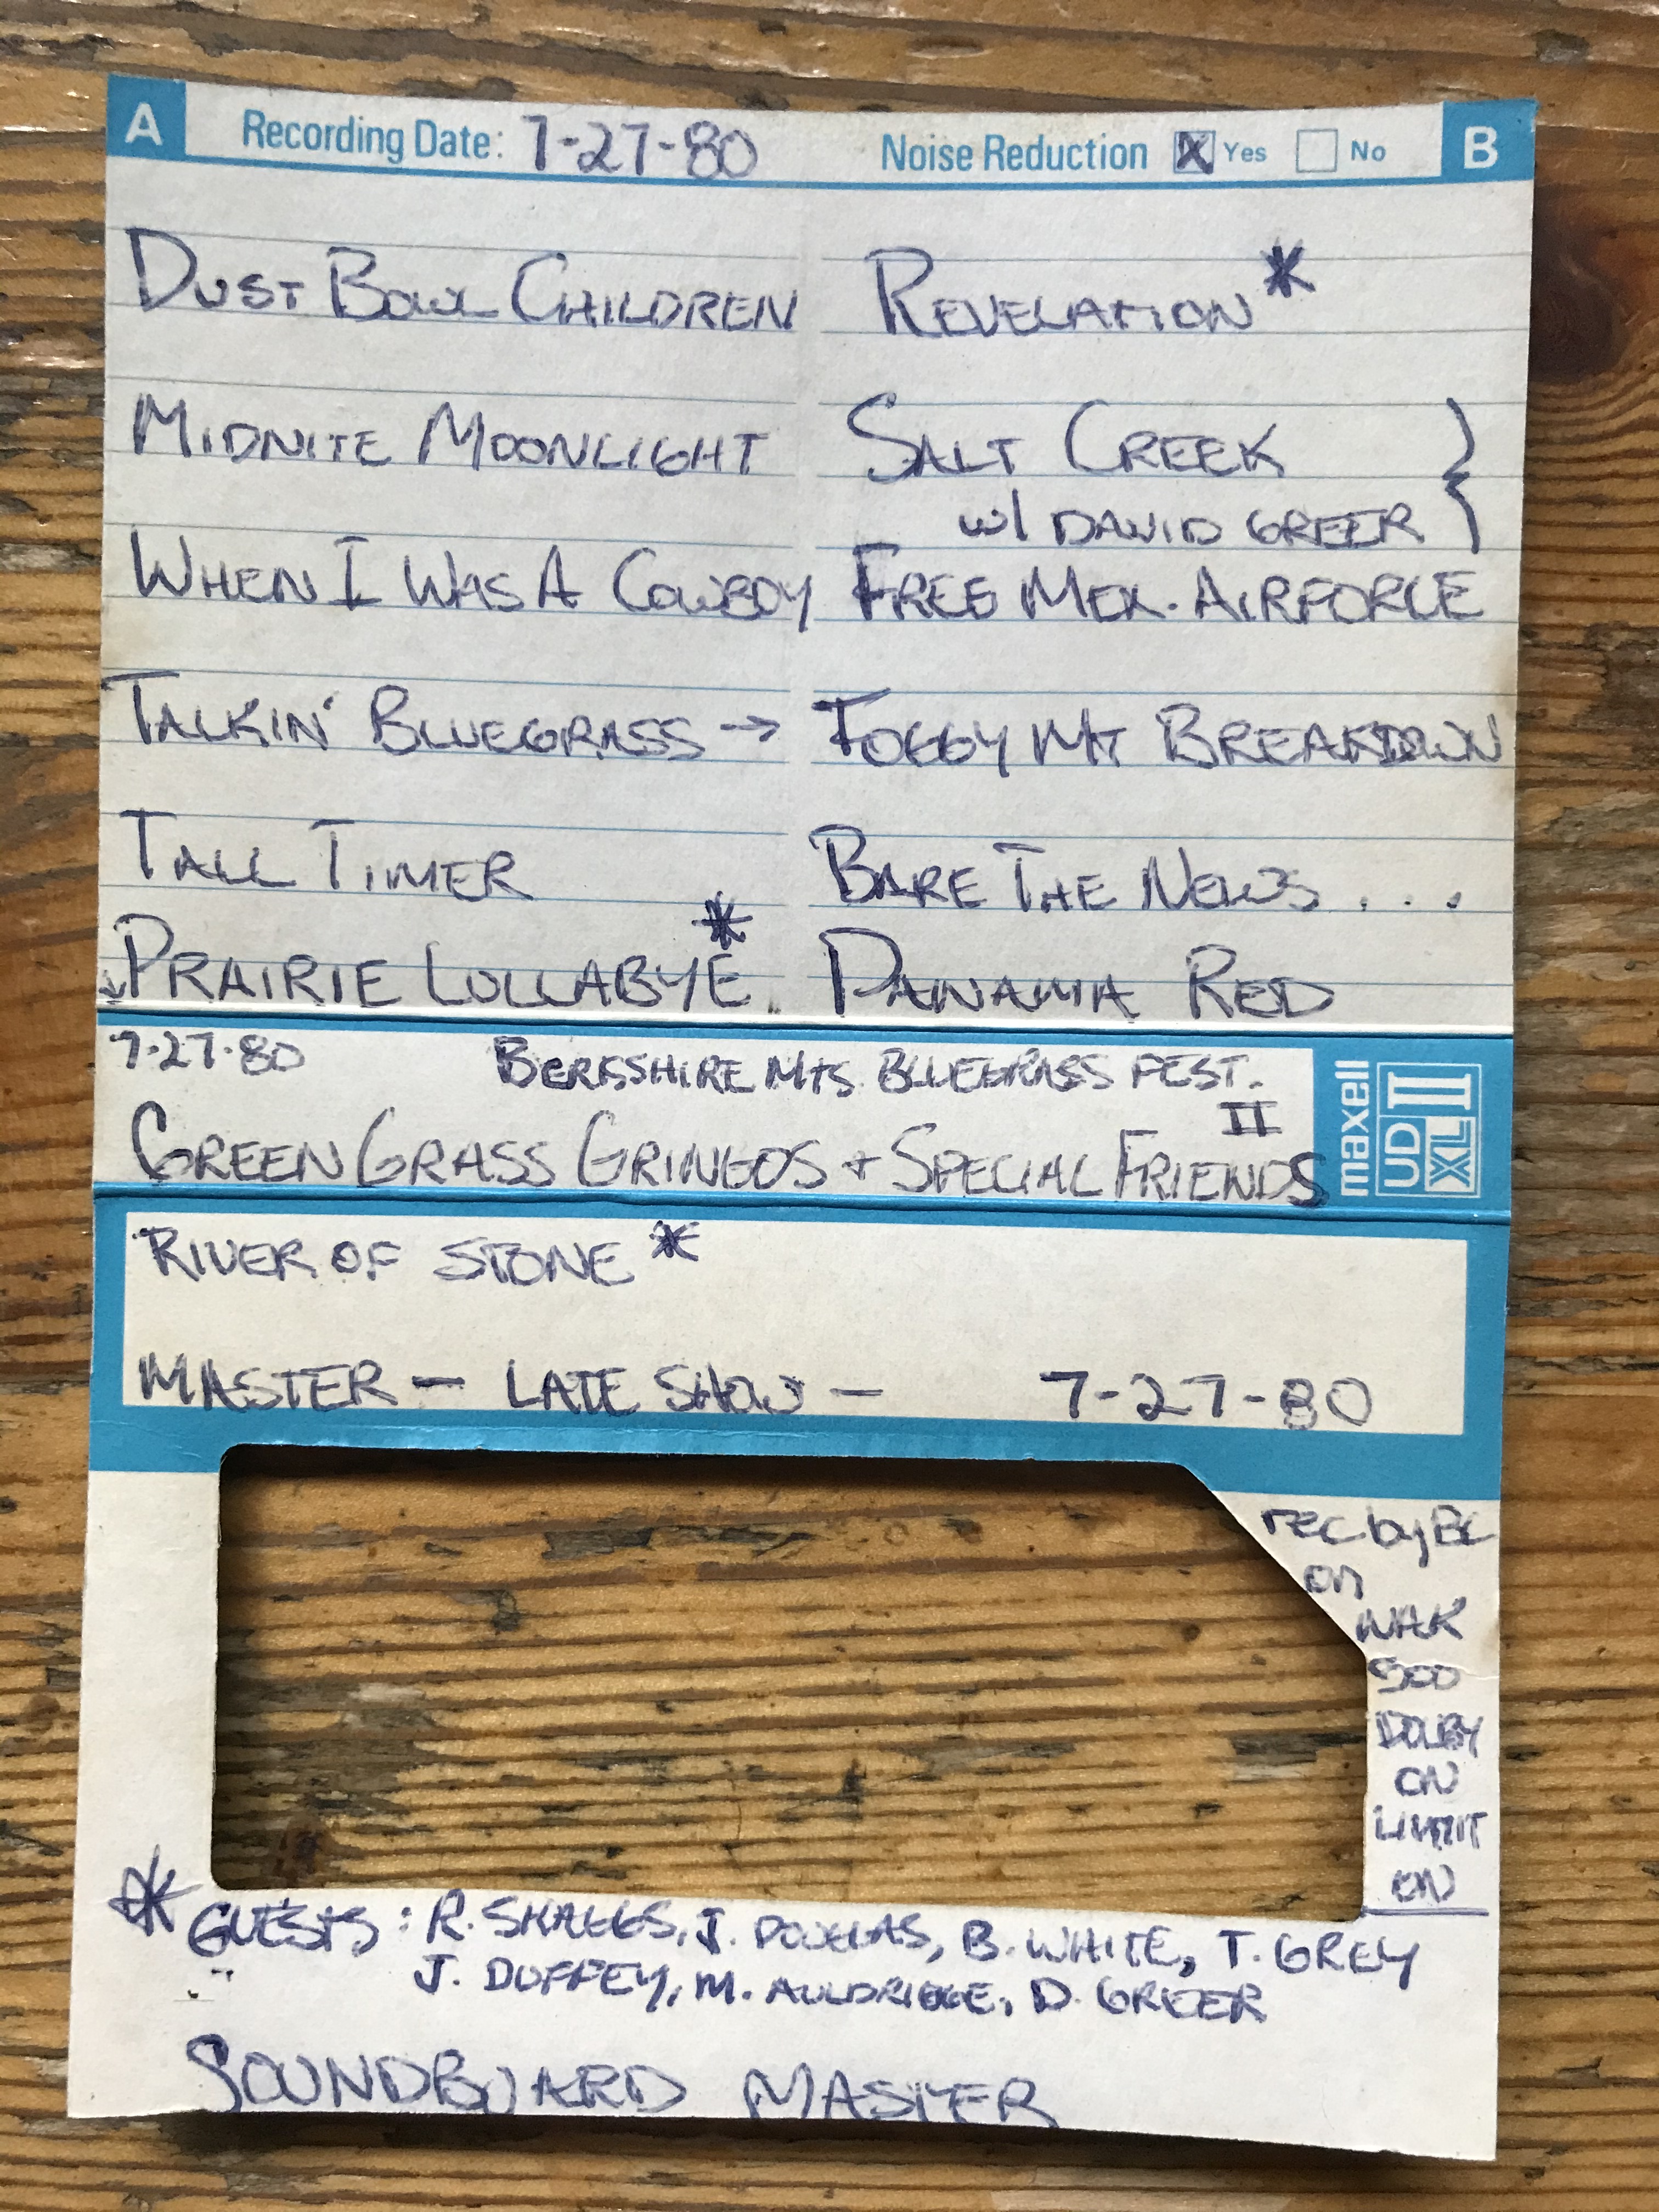 A Recording Date: 7-27-80 Noise Reduction X Yes No B
DUST BOWL CHILDREN
MIDNITE MOONLIGHT
WHEN I WAS A COWBOY
TALKIN' BLUEGRASS →
TALL TIMER
↓ PRAIRIE LULLABYE *
REVELATION *
SALT CREEK }
w/ DAVID GREER
FREE MEX. AIRFORCE
FOGGY MT BREAKDOWN
BARE THE NEWS . . .
PANAMA RED
7-27-80 BERKSHIRE MTS. BLUEGRASS FEST.
II
GREEN GRASS GRINGOS + SPECIAL FRIENDS
maxell
UD
XL II
RIVER OF STONE *
MASTER — LATE SHOW — 7-27-80
rec. by BC
on
NAK
500
DOLBY
ON
LIMIT
ON
* GUESTS: R. SKAGGS, J. DOUGLAS, B. WHITE, T. GREY
J. DUFFEY, M. AULDRIDGE, D. GREER
SOUNDBOARD MASTER